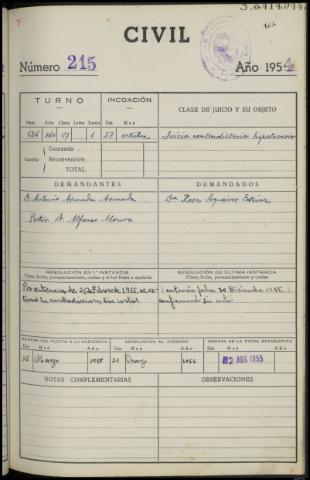 162
CIVIL
Número 215
Año 1954
TURNO
INCOACIÓN
CLASE DE JUICIO Y SU OBJETO
Núm. Acta Clase Letra Turno Día Mes
424 160 17 1 27 octubre
Juicio contradictorio hipotecario
Cuantía
Demanda
Reconvención.
TOTAL
DEMANDANTES
DEMANDADOS
D. Antonio Armada Armada
Dña Rosa Sequeiros Estévez
Pdor. D. Alfonso
RESOLUCIÓN EN 1.ª INSTANCIA
Clase, fecha, pronunciamiento, costas y si fué firme o apelada
RESOLUCIÓN DE ÚLTIMA INSTANCIA
Clase, fecha, pronunciamiento y costas
Por sentencia de 25 Febrero 1955, se
la contradicción, sin costas.
sentencia fecha 30 Diciembre 1955
confirmando sin costas
REMESA DEL PLEITO A LA AUDIENCIA
DEVOLUCIÓN AL JUZGADO
REMESA DE LA FICHA ESTADÍSTICA
Día Mes Año Día Mes Año Día Mes Año
15 Marzo 1955 21 Marzo 1956
2 ABR. 1955
NOTAS COMPLEMENTARIAS
OBSERVACIONES